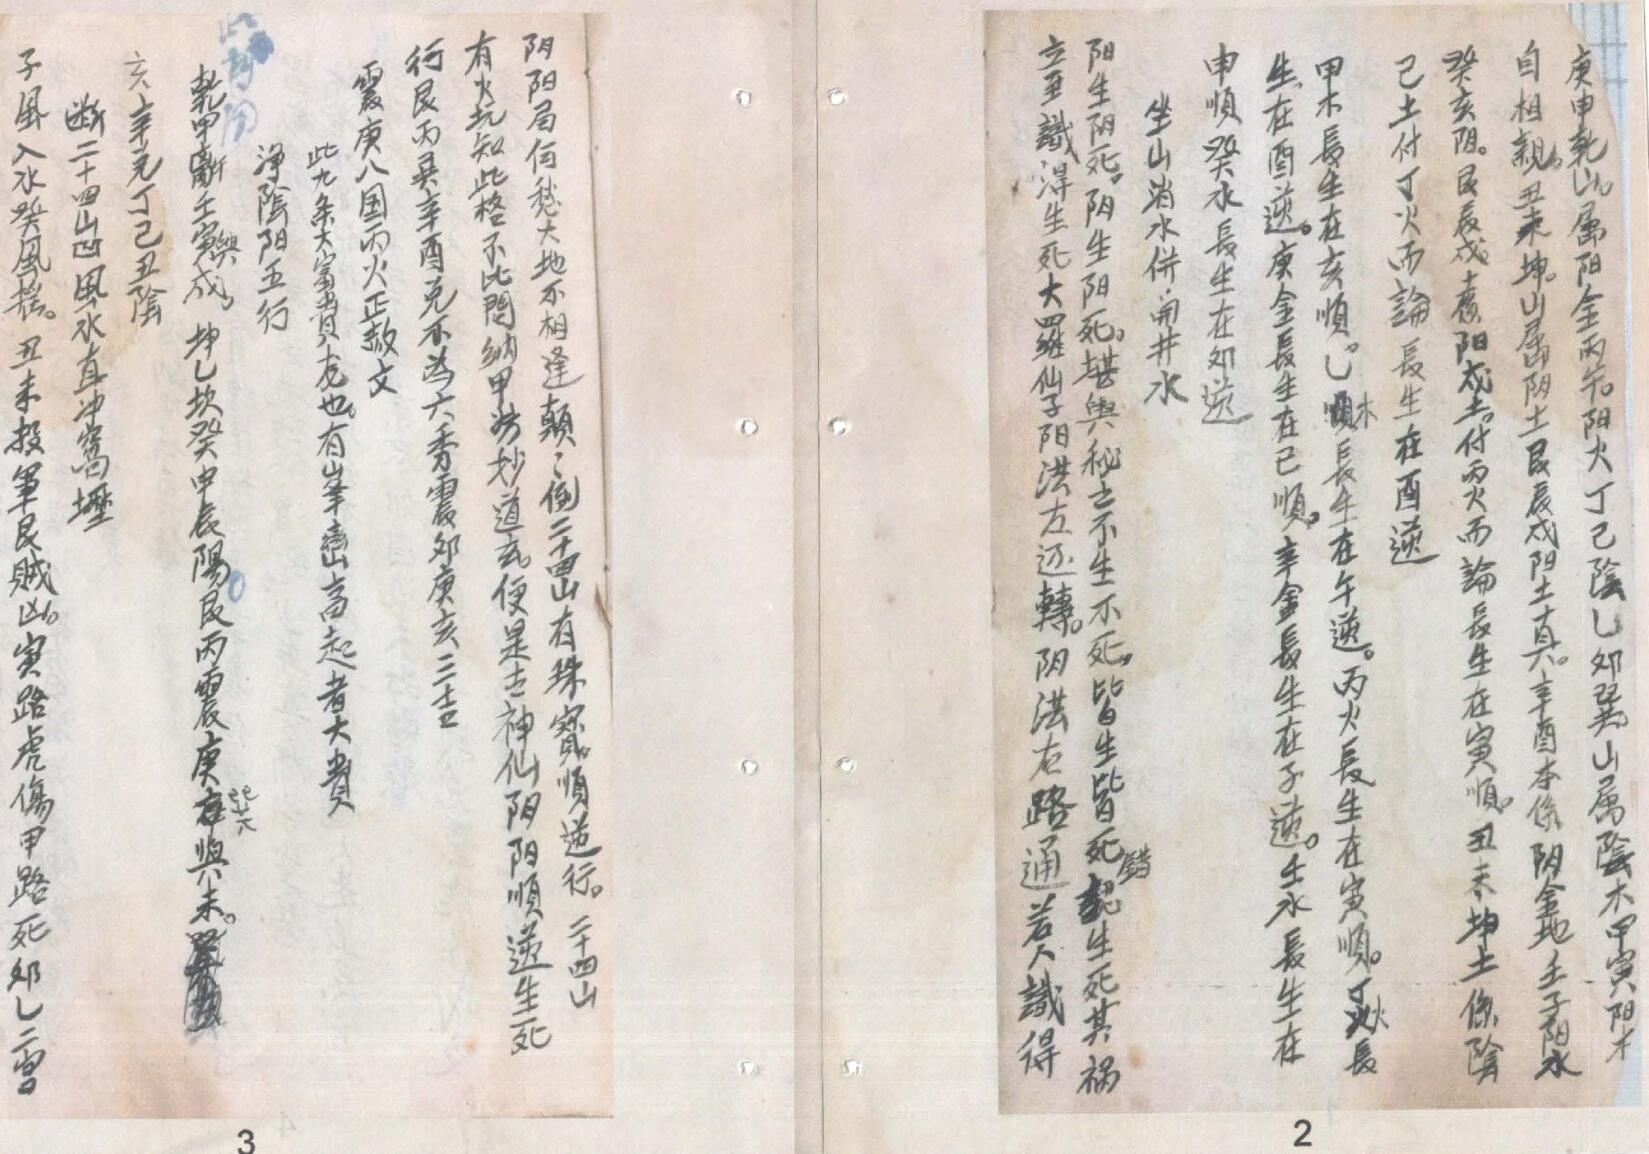 庚申乾山。属阳金丙午。阳火丁己陰乚卯巽山属陰木甲寅阳木
自相親。丑未坤。山属阴土艮辰戍阳土真。辛酉本係阴金地壬子阳水
癸亥阴。艮辰戍土震阳戍土。付丙火而論長生在寅順。丑未坤土係陰
己土付丁火而論長生在酉逆
甲木長生在亥順。乚木長生在午逆。丙火長生在寅順。丁火長
生在酉逆。庚金長生在已順。辛金長生在子逆。壬水長生在
申順癸水長生在卯逆
坐山消水併開井水
阳生阴死。阴生阳死。堪輿秘之不生不死。皆生皆死錯認生死其禍
立至識淂生死大羅仙子阳洪左还轉。阴洪右路通若人識得
2
阴阳局伯愁大地不相逢顛々倒二十四山有珠寶。順逆行。二十四山
有火坑知此格不比閗納甲妙道玄。便是古神仙阴阳順逆生死
行艮丙巽辛酉兑丕為六秀震卯庚亥三吉
震庚八国丙火正赦文
此九条大富貴龙也。有峯巒高起者大貴
净陰阳五行
乾甲離壬寅與戍。坤乚坎癸申辰陽艮丙震庚巽與未。
亥辛兑丁己丑陰
断二十四山凹風水直冲窩壢
子風入水癸風搖。丑未投軍艮賊凶。寅路虎傷甲路死卯乚二宫
3